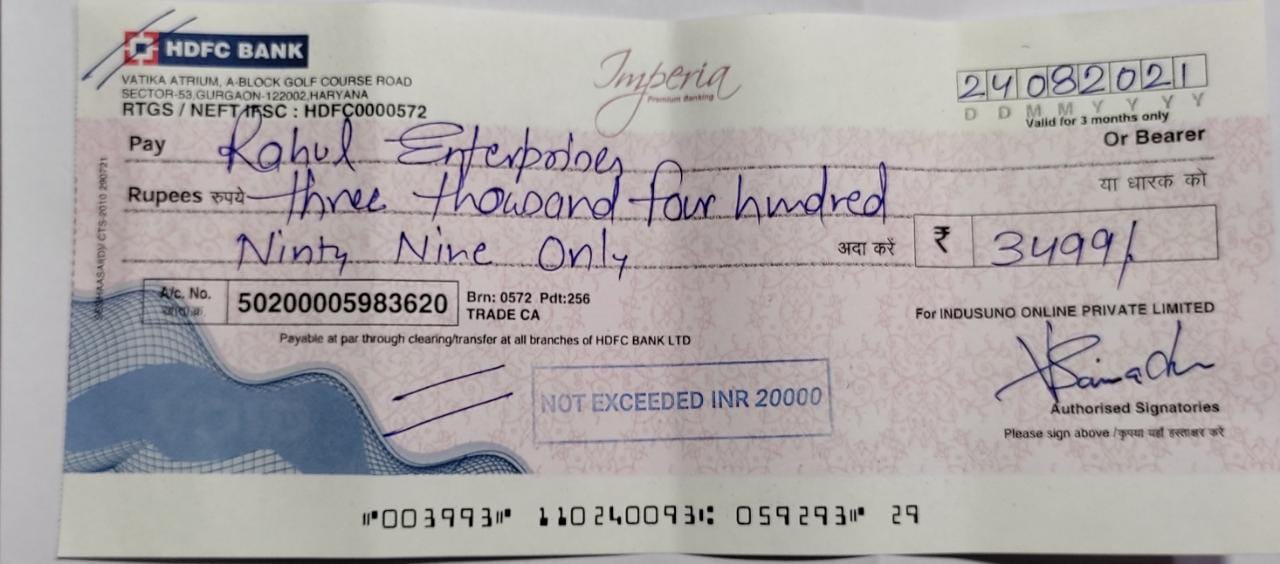 HDFC BANK
VATIKA ATRIUM, A-BLOCK GOLF COURSE ROAD
SECTOR-53,GURGAON-122002,HARYANA
RTGS / NEFT IFSC : HDFC0000572
Imperia
Premium Banking
24082021
D D M M Y Y Y Y
Valid for 3 months only
Pay Rahul Enterprises Or Bearer
Rupees रुपये three thousand four hundred या धारक को
Ninty Nine Only अदा करें ₹ 3499/
A/c. No. 50200005983620 Brn: 0572 Pdt:256
TRADE CA
For INDUSUNO ONLINE PRIVATE LIMITED
Payable at par through clearing/transfer at all branches of HDFC BANK LTD
NOT EXCEEDED INR 20000
Authorised Signatories
Please sign above /कृपया यहाँ हस्ताक्षर करें
⑈003993⑈ 110240093⑆ 059293⑈ 29
CTS-2010